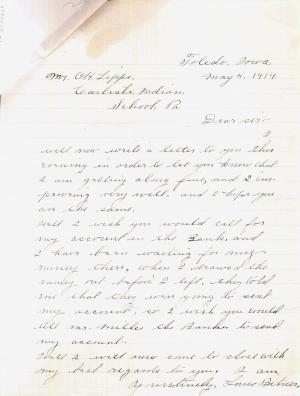 Toledo, Iowa
May 5, 1914.
Mr. O.H. Lipps.
Carlisle Indian
School, Pa
Dear sir
I
will now write a letter to you this
evening in order to let you know that
I am getting along fine, and I im-
prouving very well. and I hope you
are the same.
Well I wish you would call for
my account in the Bank, and
I have been waiting for my
money then, when I drawed the
money out before I left, they told
me that they were going to sent
my account, so I wish you would
tell Mr. Miller the Banker to send
my account.
Well I will now come to close with
my best regards to you. I am
Respectfully, Louis